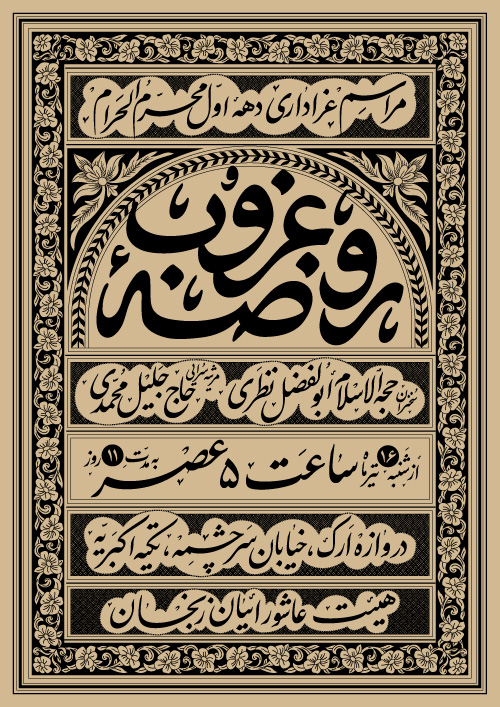 مراسم عزاداری دهه اول محرم الحرام
روضهٔ غروب
سخنران حجه الاسلام ابوالفضل نظری مرثیه سرائی حاج جلیل محمدی
از شنبه ۱۶ تیرماه ساعت ۵ عصر به مدت ۱۱ روز
دروازه ارک، خیابان سرچشمه، تکیه اکبریه
هیئت عاشورائیان زنجان